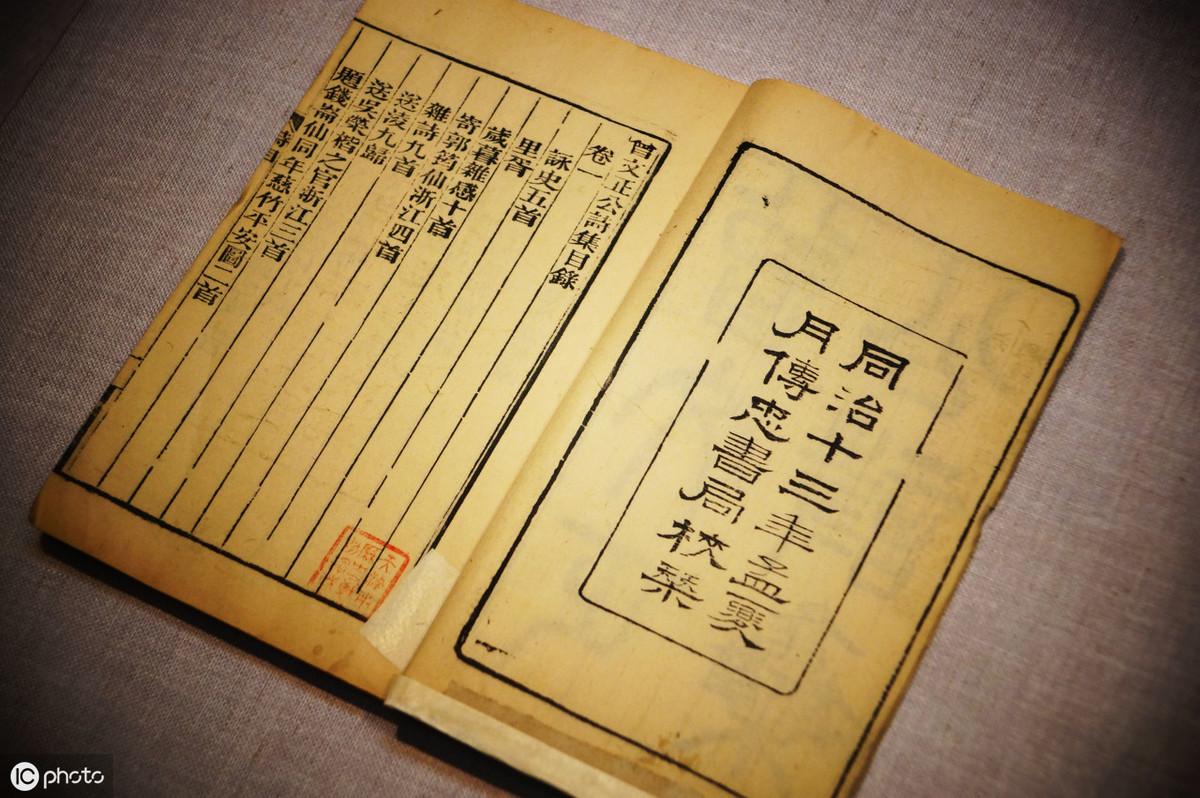 同治十三年孟夏
月傳忠書局校栞
曾文正公詩集目錄
卷一
詠史五首
里胥
歲暮雜感十首
寄郭筠仙浙江四首
雜詩九首
送凌九歸
送吳榮楷之官浙江三首
題錢崙仙同年慈竹平安圖二首
詩目
IC photo